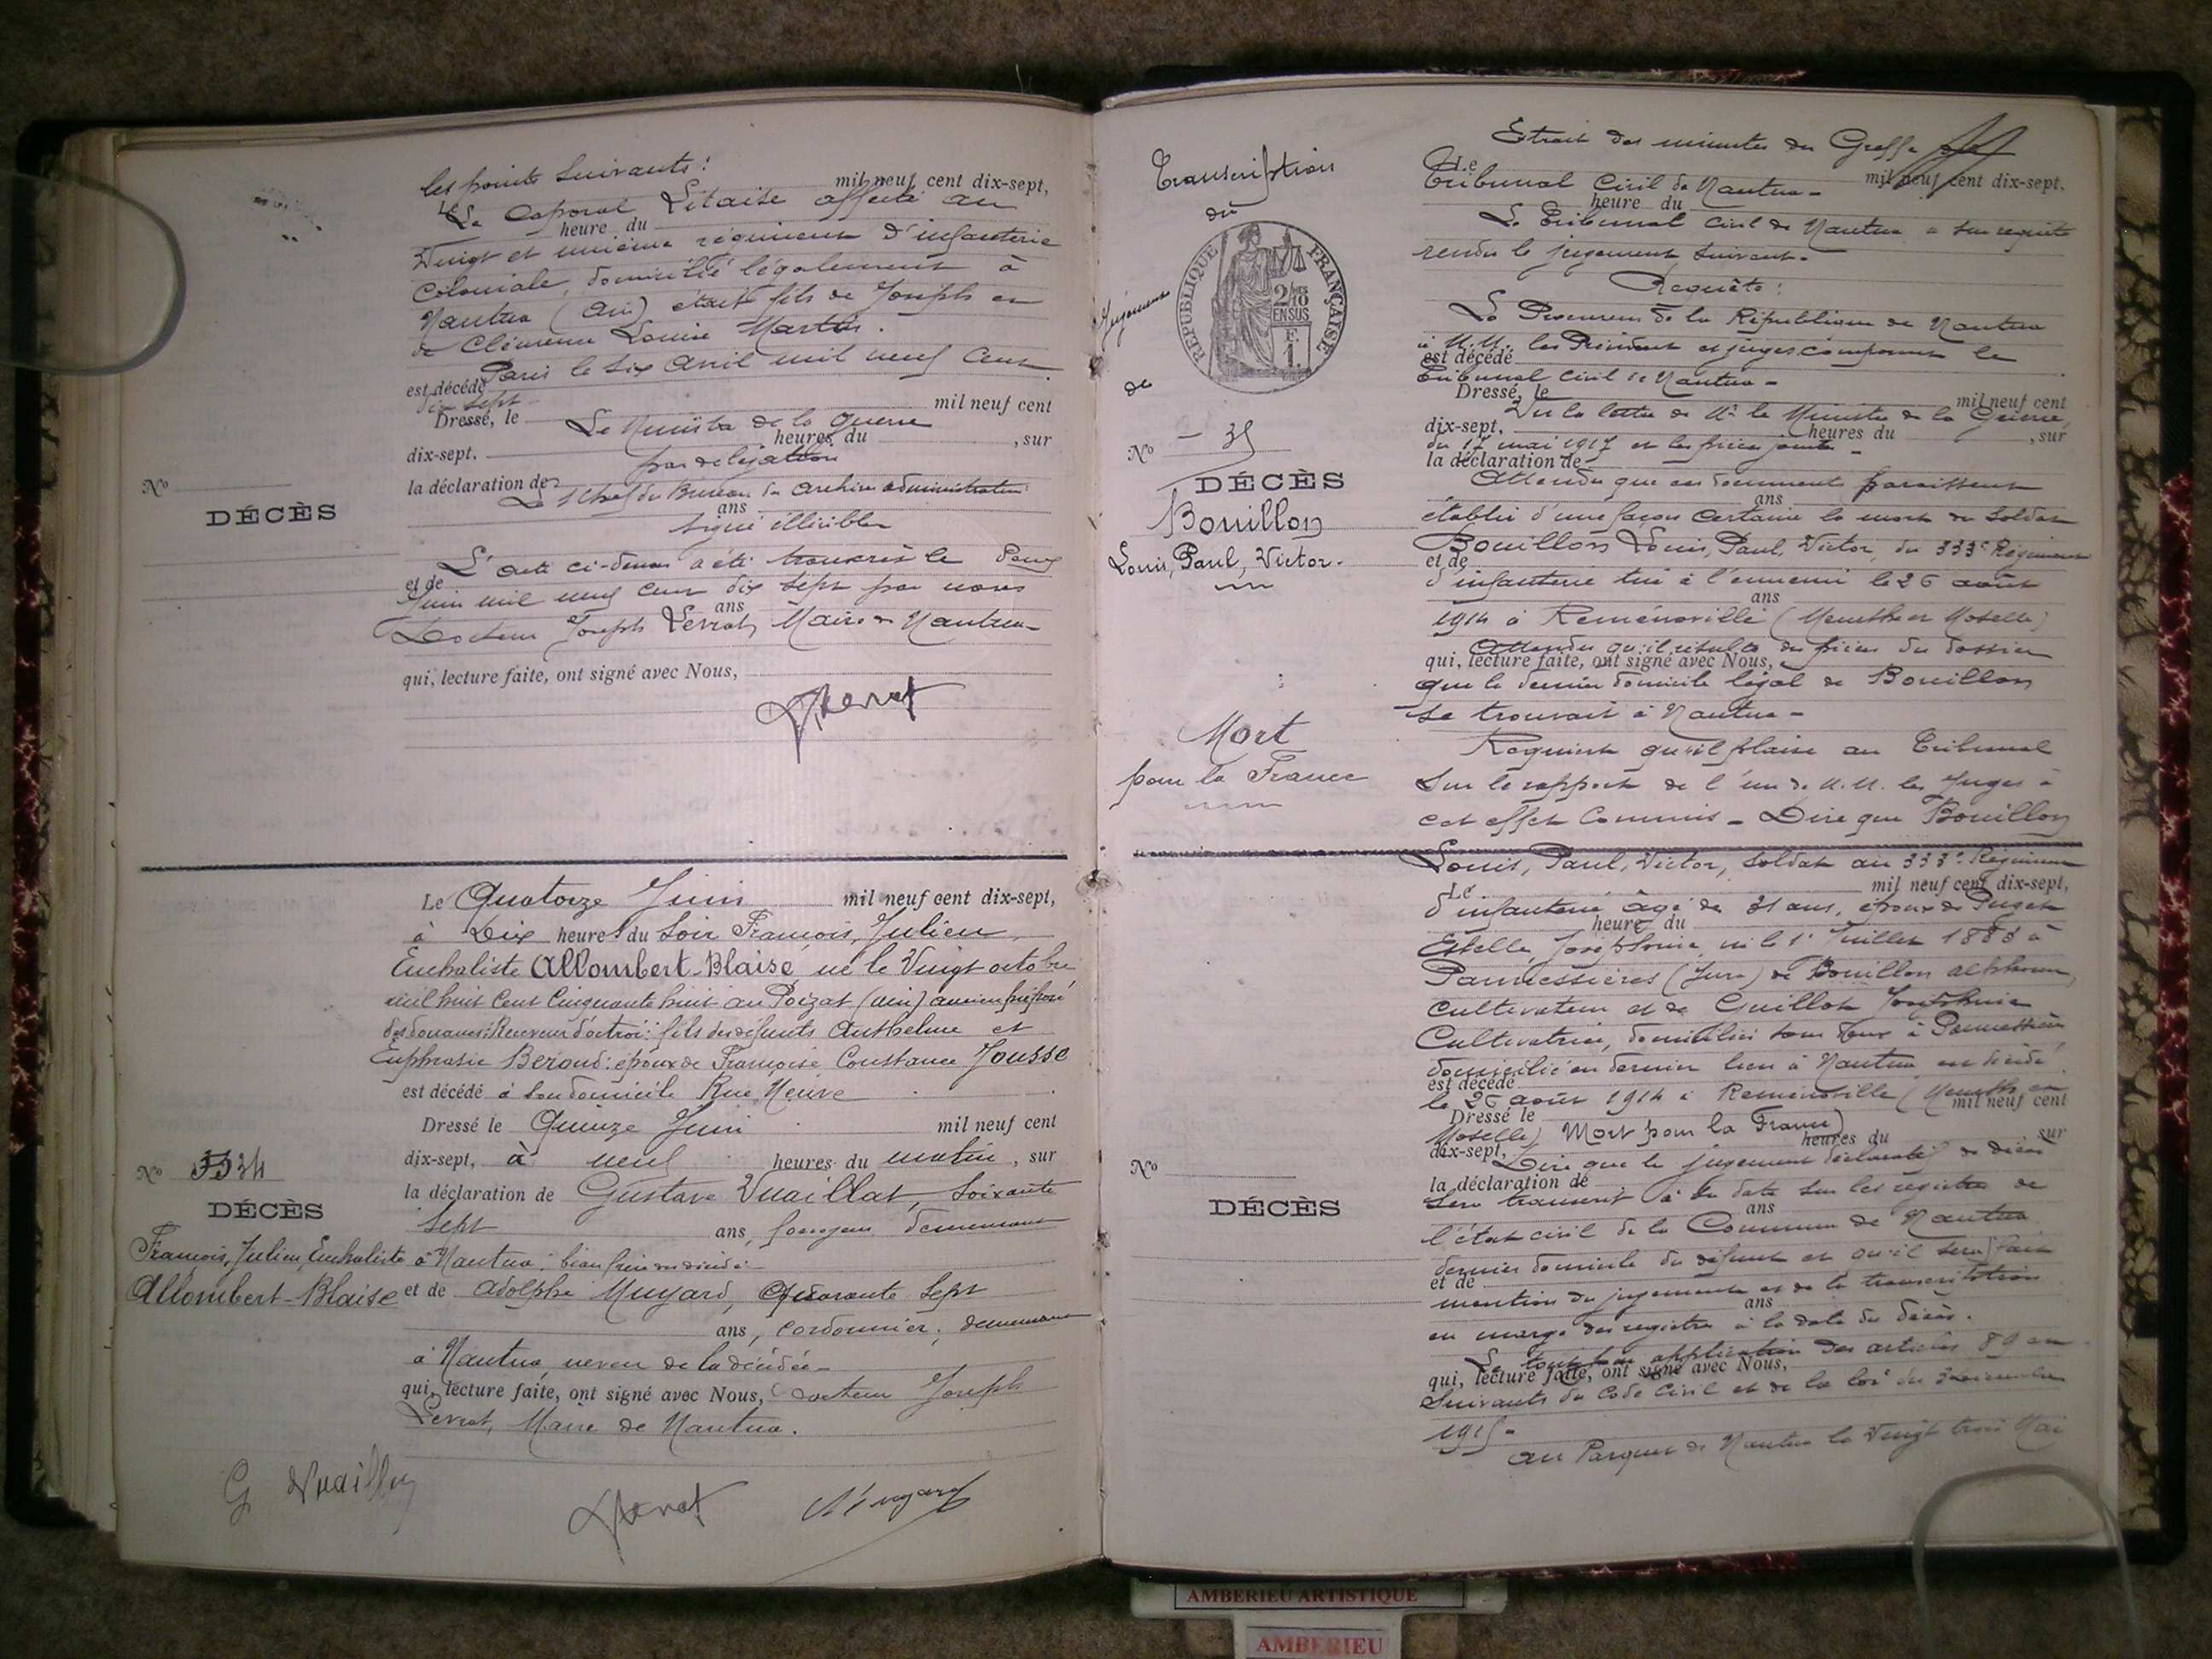 les points suivants :
mil neuf cent dix-sept,
Le Caporal Létaise affecté au
heure du
Vingt et unième régiment d'infanterie
Coloniale, domicilié légalement à
Nantua (Ain) était fils de Joseph et
de Clémence Louise Martin.
Paris le six avril mil neuf cent
est décédé
dix sept
mil neuf cent
Dressé, le
Le Ministre de la Guerre
heures du , sur
dix-sept.
par délégation
la déclaration de
Le Chef du Bureau des archives administratives
ans
signé illisible
L'acte ci-dessus a été transcrit le Deux
et de
Juin mil neuf cent dix sept par nous
ans
Docteur Joseph Levrat, Maire de Nantua
qui, lecture faite, ont signé avec Nous,
No
DÉCÈS
Le Quatorze Juin mil neuf cent dix-sept,
à Dix heures du Soir François, Julien
Euchaliste Allombert-Blaise né le Vingt octobre
mil huit cent cinquante huit au Poizat (Ain) ancien préposé
des douanes; Receveur d'octroi: fils des défunts Anthelme et
Euphrasie Beroud: époux de Françoise Constance Jousse
est décédé à son domicile Rue Neuve
Dressé le Quinze Juin mil neuf cent
dix-sept, à neuf heures du matin, sur
la déclaration de Gustave Vuaillat, Soixante
Sept ans, demeurant
à Nantua:
et de Adolphe Mugard, Quarante Sept
ans, cordonnier, demeurant
à Nantua, neveu de la décédée
qui, lecture faite, ont signé avec Nous, Docteur Joseph
Levrat, Maire de Nantua.
No 34
DÉCÈS
François, Julien, Euchaliste
Allombert-Blaise
Transcription
du
Jugement
de
RÉPUBLIQUE FRANÇAISE
2/10
EN SUS
F.
1.
No 35
DÉCÈS
Bouillon
Louis, Paul, Victor.
Mort
pour la France
Extrait des minutes du Greffe
Le
Tribunal Civil de Nantua mil neuf cent dix-sept,
heure du
Le Tribunal Civil de Nantua a sur requête
rendu le jugement suivant.
Requête :
Le Procureur de la République de Nantua
à M.M. les Président et juges composant le
est décédé
Tribunal civil de Nantua
Dressé, le mil neuf cent
Vu la lettre de Mr le Ministre de la Guerre,
dix-sept, heures du , sur
du 17 mai 1917 et les pièces jointes
la déclaration de
Attendu que ces documents paraissent
ans
établir d'une façon certaine la mort du Soldat
Bouillon Louis, Paul, Victor, du 333e Régiment
et de
d'infanterie tué à l'ennemi le 26 août
ans
1914 à Reménoville (Meurthe et Moselle)
Attendu qu'il résulte des pièces du dossier
qui, lecture faite, ont signé avec Nous,
que le dernier domicile légal de Bouillon
se trouvait à Nantua
Requiert qu'il plaise au Tribunal
Sur le rapport de l'un de M.M. les Juges à
cet effet Commis - Dire que Bouillon
Louis, Paul, Victor, soldat au 333e Régiment
Le mil neuf cent dix-sept,
d'infanterie âgé de 31 ans, époux de Puget
heure du
Estelle, Joséphine, né le 1er Juillet 1883 à
Pannessières (Jura) de Bouillon alphonse,
Cultivateur et de Guillot Joséphine
Cultivatrice, domiciliés tous deux à Pannessières
domicilié en dernier lieu à Nantua, est décédé
est décédé
le 26 août 1914 à Reménoville (Meurthe et
mil neuf cent
Dressé le
Moselle) Mort pour la France)
heures du sur
dix-sept,
Dire que le jugement déclaratif de décès
la déclaration de
Sera transcrit à sa date sur les registres de
ans
l'état civil de la Commune de Nantua
dernier domicile du défunt et qu'il sera fait
et de
mention du jugement et de la transcription
ans
en marge des registres à la date du décès.
Le tout par application des articles 89 et
qui, lecture faite, ont signé avec Nous,
Suivants du Code Civil et de la loi du 3 décembre
1915
Au Parquet de Nantua le Vingt trois Mai
No
DÉCÈS
AMBERIEU ARTISTIQUE
AMBERIEU